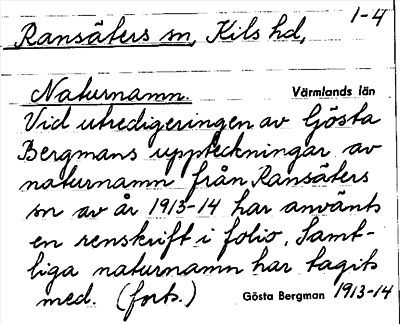 1-4
Ransäters sn, Kils hd,
Naturnamn. Värmlands län
Vid utredigeringen av Gösta
Bergmans uppteckningar av
naturnamn från Ransäters
sn av år 1913-14 har använts
en renskrift i folio. Samt-
liga naturnamn har tagits
med. (forts.) Gösta Bergman 1913-14